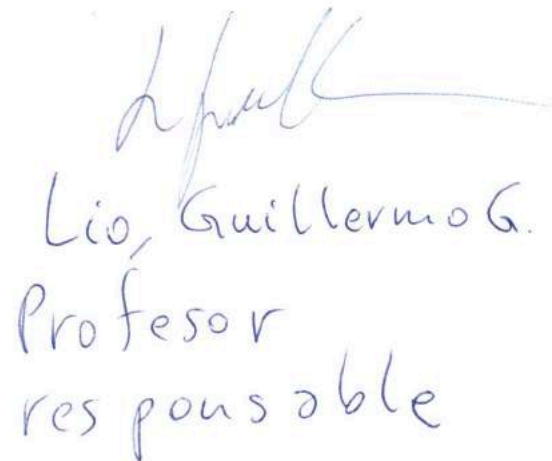 Lio, Guillermo G.
Profesor
responsable